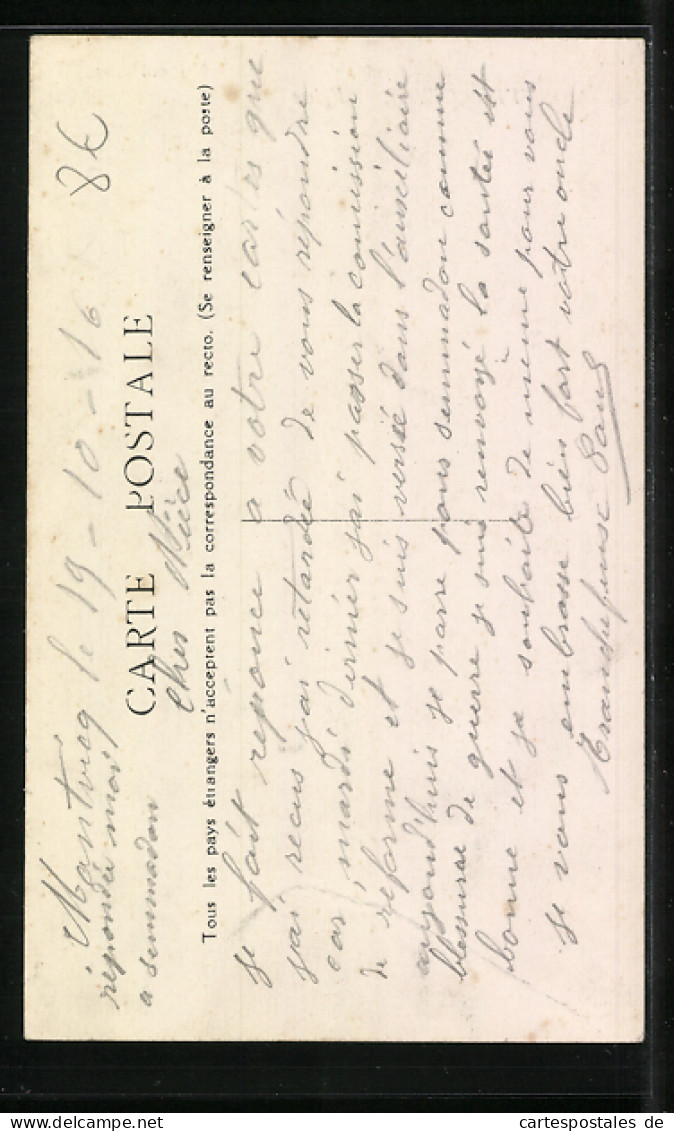 8€
Mantvieg le 19-10-16
répondée moi
a semmadon
CARTE POSTALE
Cher Nièce
Tous les pays étrangers n'acceptent pas la correspondance au recto. (Se renseigner à la poste)
je fait reponce a votre cartes que
j'ai recus j'ai retardée de vous répondre
car mardi dernier j'ai passer la comission
de réforme et je suis versée dans l'auxiliaire
aujourd'huis je parre pour semmadon comme
blessurre de guerre je suis renvoyé la santée est
bonne et je souhaite de même pour vous
je vous embrasse bien fort votre oncle
Paul
cartespostales de